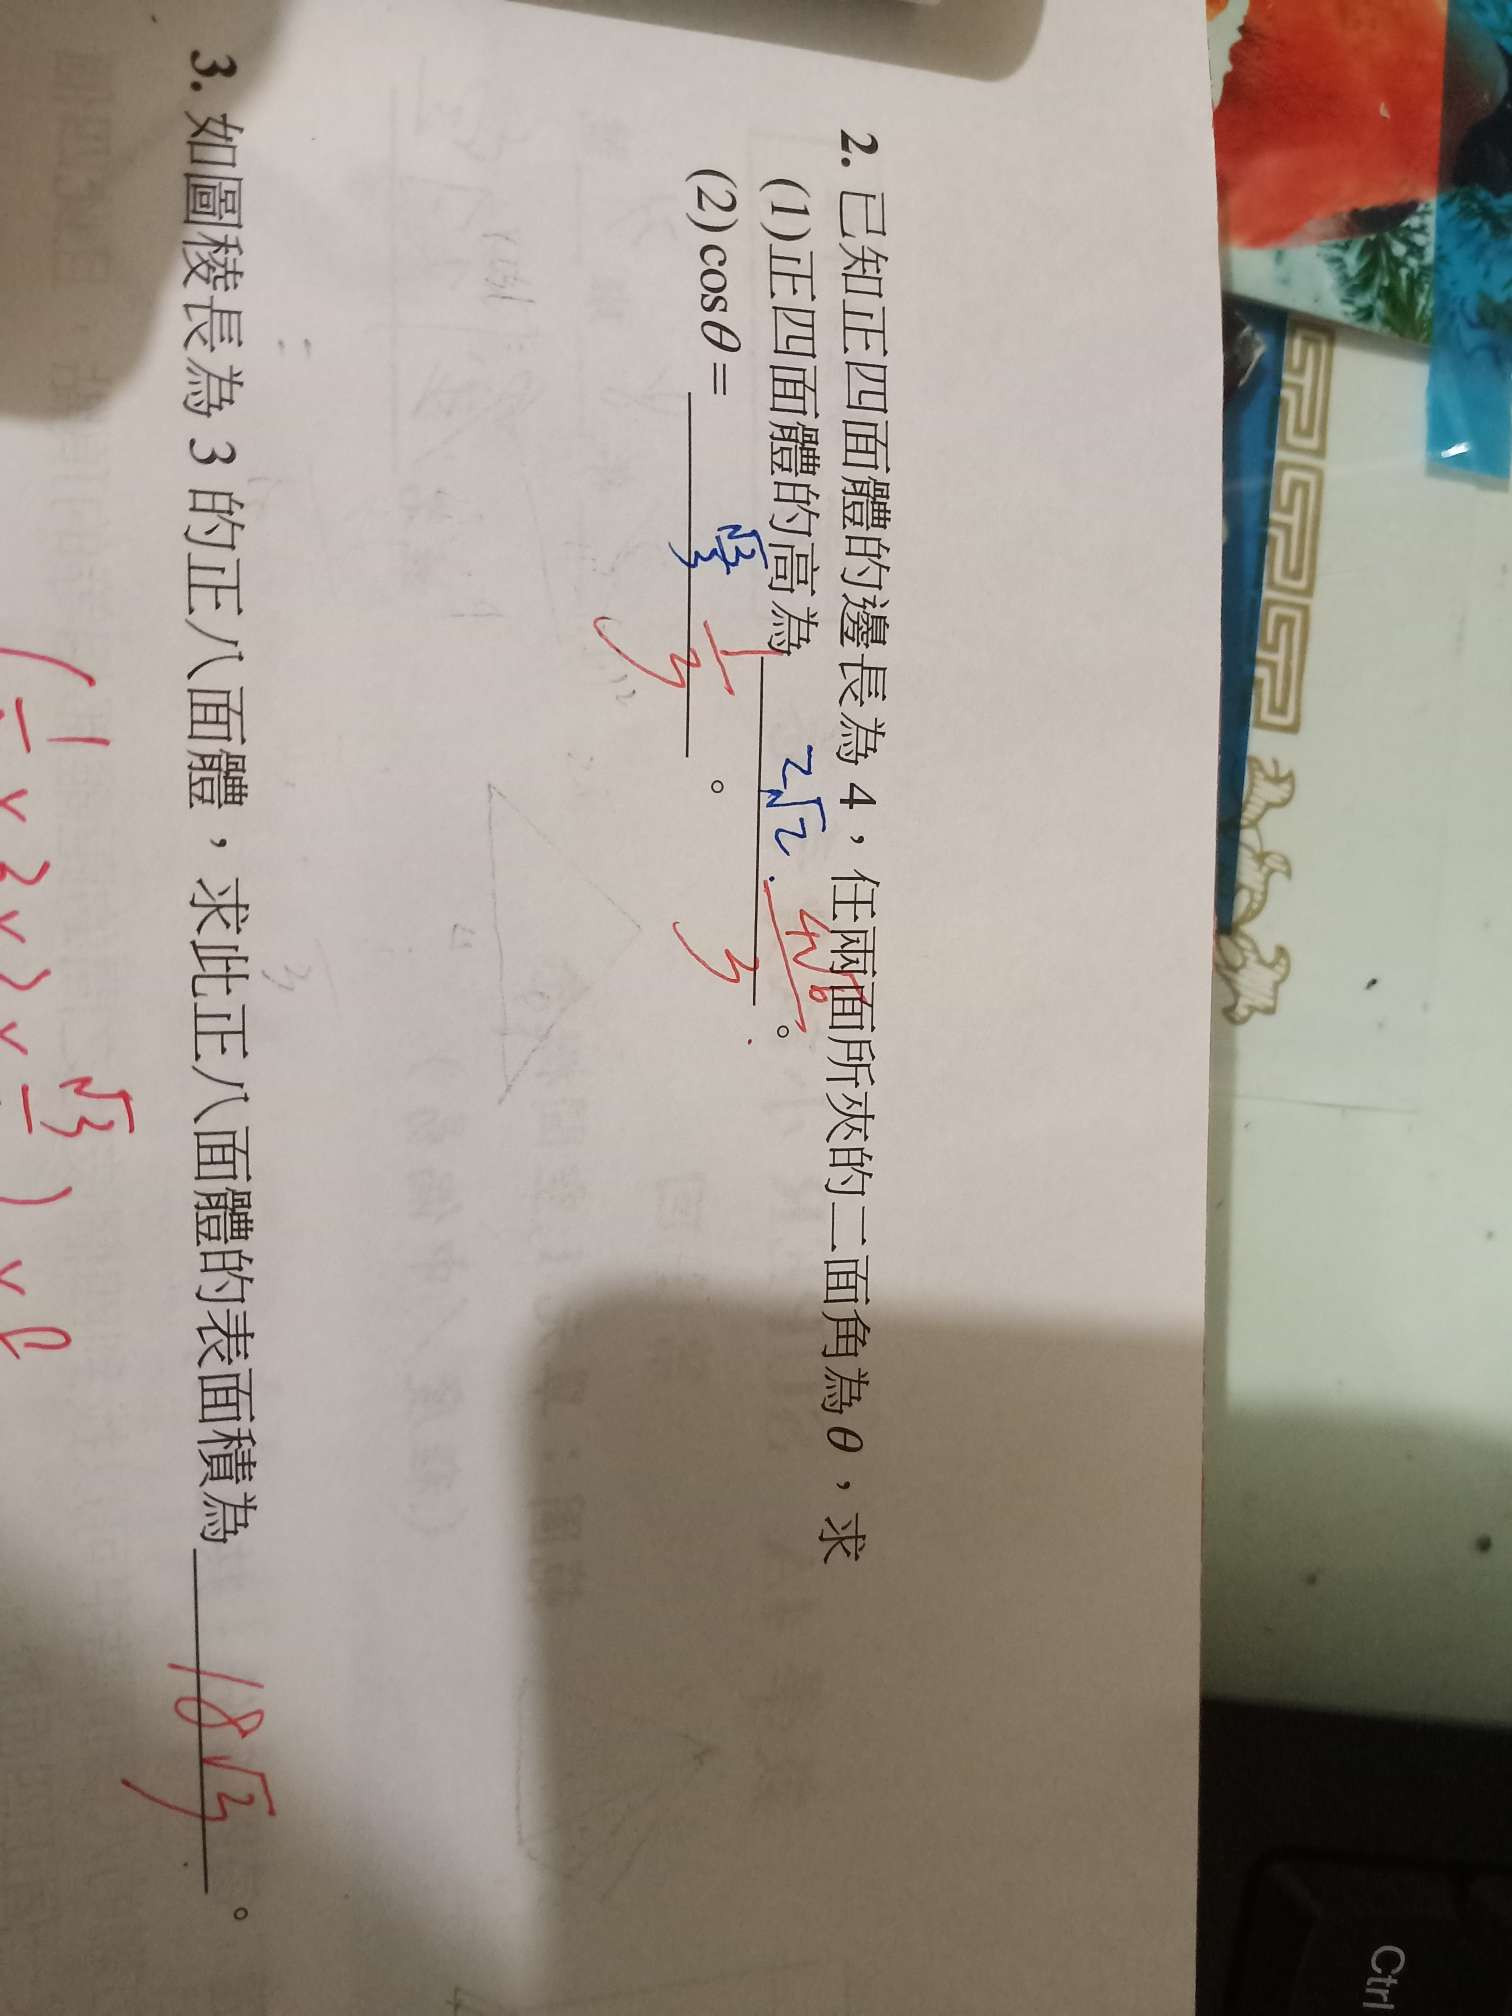 2. 已知正四面體的邊長為 4，任兩面所夾的二面角為θ，求
(1)正四面體的高為 2√2 4√6/3 。
(2)cosθ = √3/3 1/3 。
3. 如圖稜長為 3 的正八面體，求此正八面體的表面積為 18√3 。
Ctrl